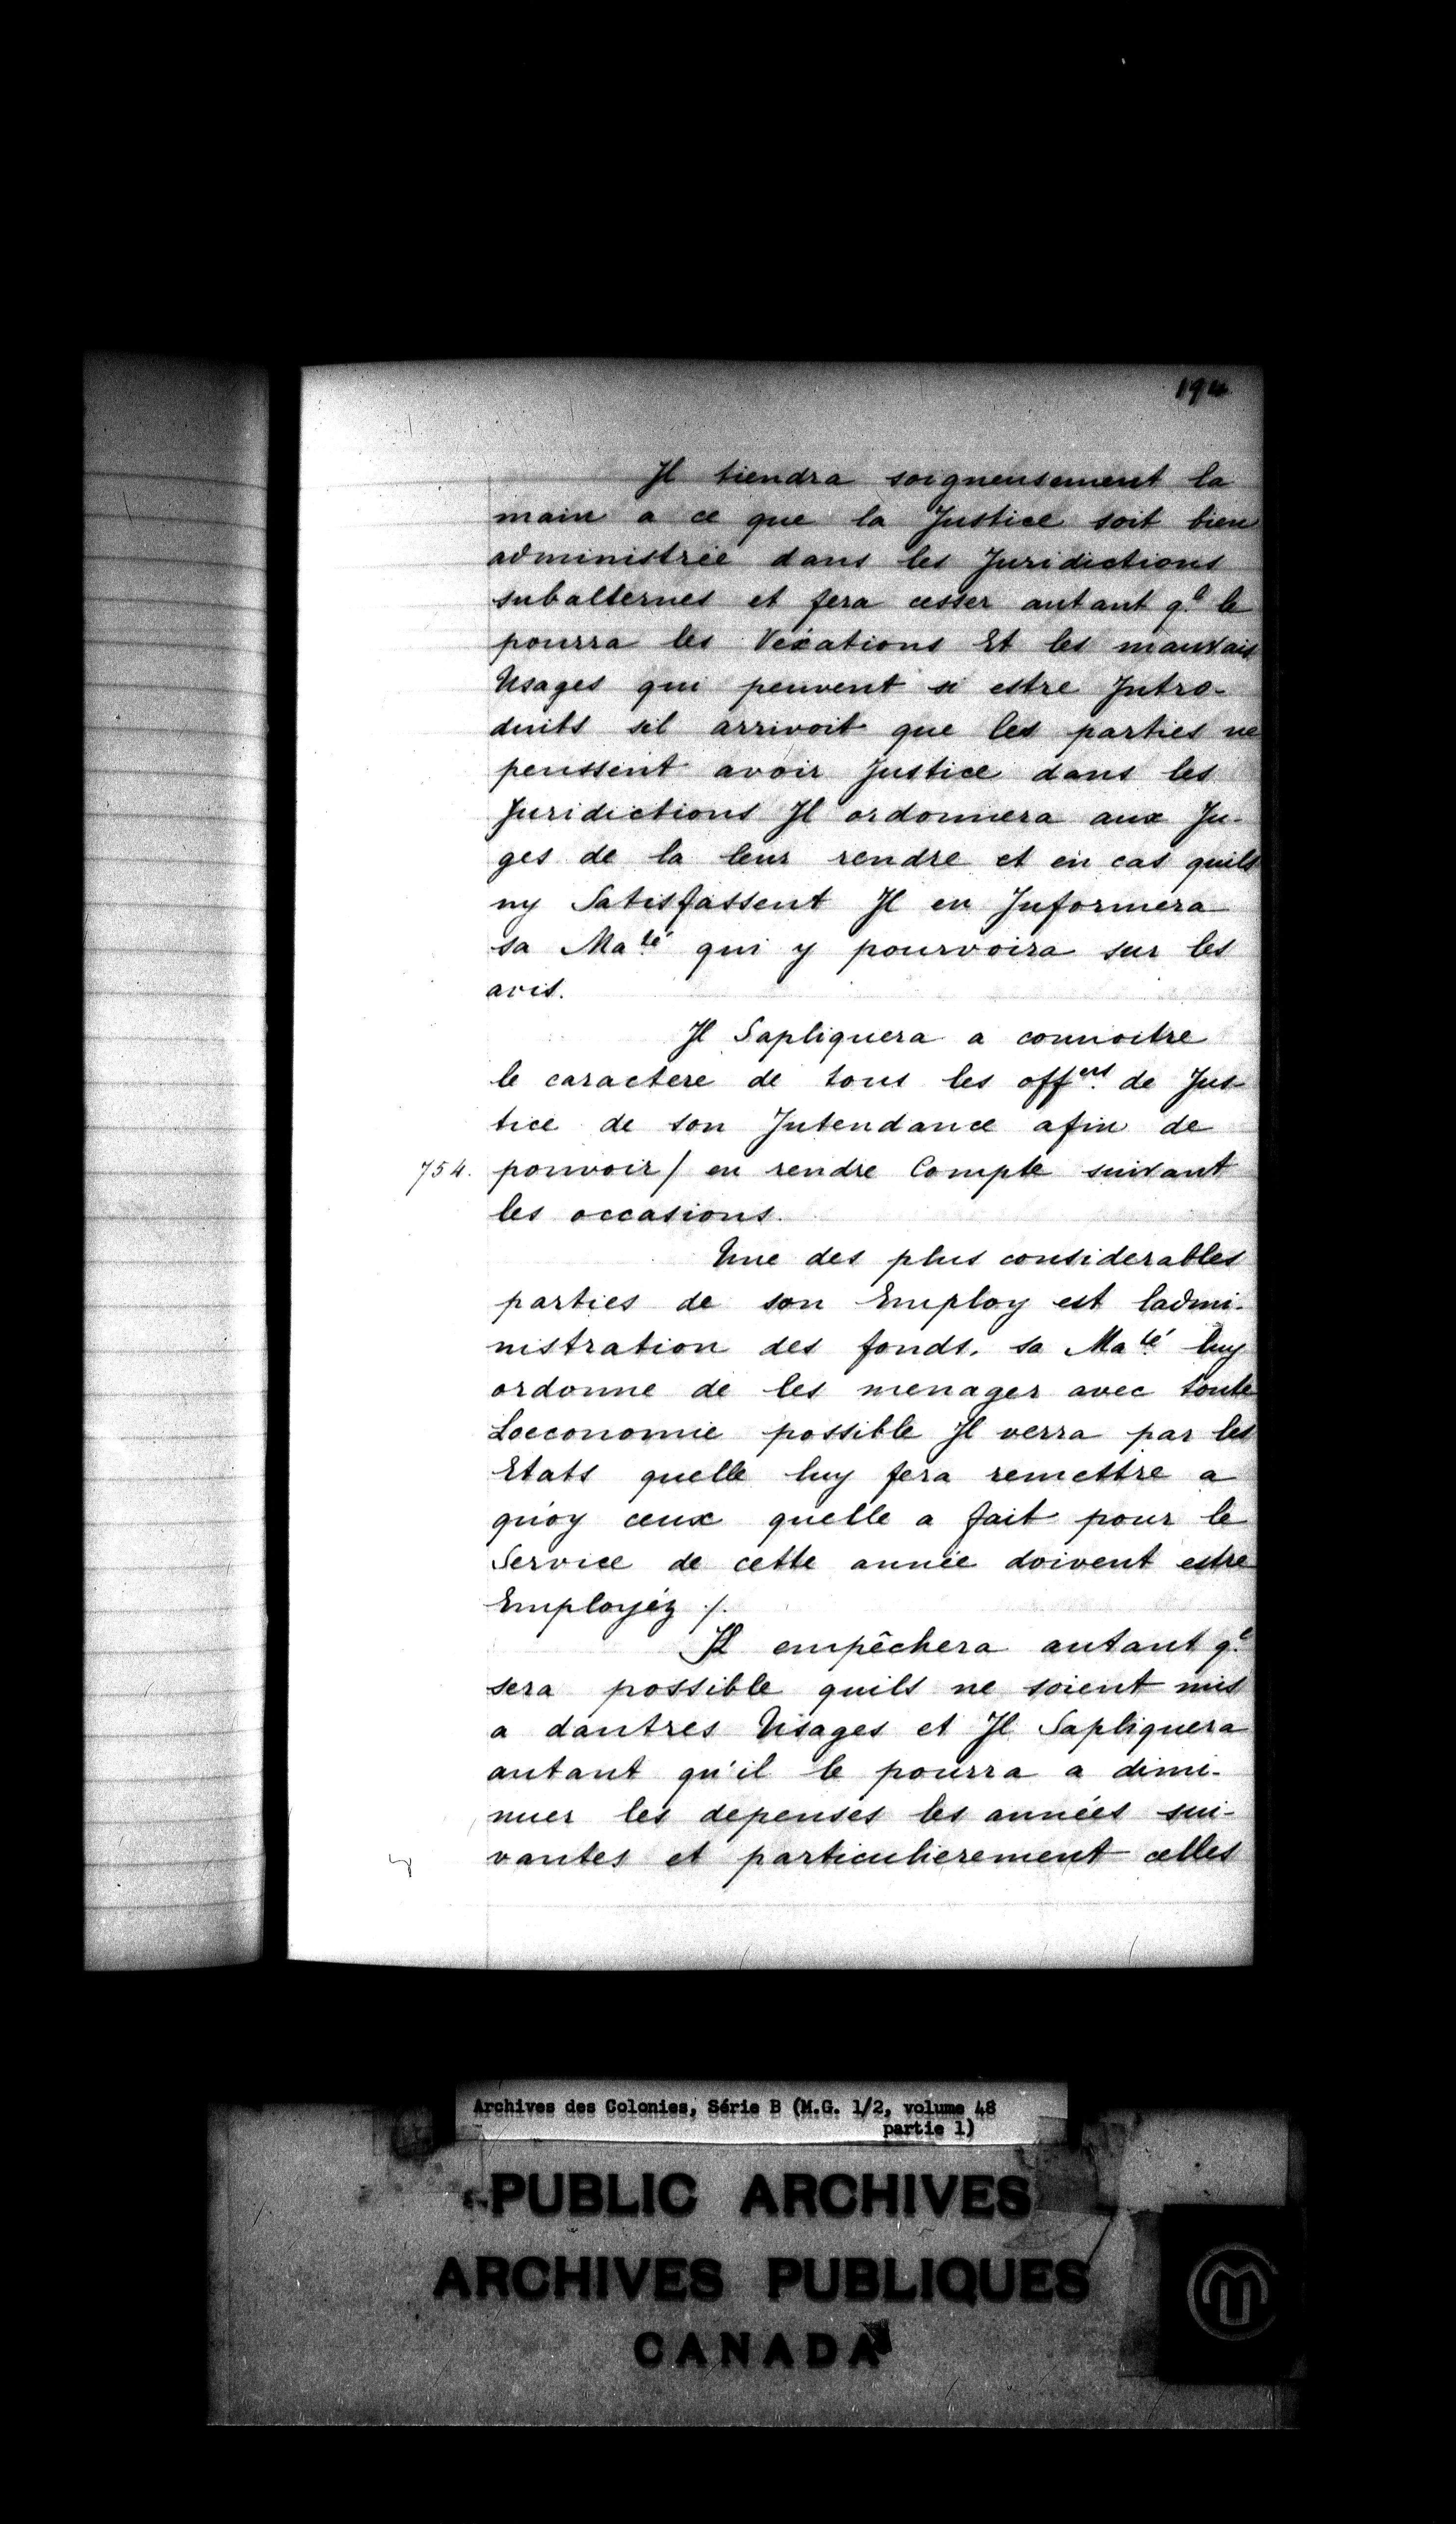 Il tiendra soigneusement la
main a ce que la Justice soit bien
administrée dans les Juridictions
subalternes et fera cesser autant q.l le
pourra les Vexations Et les mauvais
Usages qui peuvent si estre Intro-
duits sil arrivoit que les parties ne
peussent avoir Justice dans les
Juridictions Il ordonnera aux Ju-
ges de la leur rendre et en cas quils
ny Satisfassent Il en Informera
sa Ma.té qui y pourvoira sur les
avis.
Il Sapliquera a connoitre
le caractere de tous les off.ers de Jus-
tice de son Intendance afin de
754. pouvoir / en rendre Compte suivant
les occasions.
Une des plus considerables
parties de son Employ est ladmi-
nistration des fonds. sa Ma.té luy
ordonne de les menager avec toute
Loeconomie possible Il verra par les
Etats quelle luy fera remettre a
quoy ceux quelle a fait pour le
Service de cette année doivent estre
Employéz /.
Il empêchera autant q.l
sera possible quils ne soient mis
a dautres Usages et Il Sapliquera
autant qu'il le pourra a dimi-
nuer les depenses les années sui-
vantes et particulierement celles
Archives des Colonies, Série B (M.G. 1/2, volume 48
partie 1)
PUBLIC ARCHIVES
ARCHIVES PUBLIQUES
CANADA